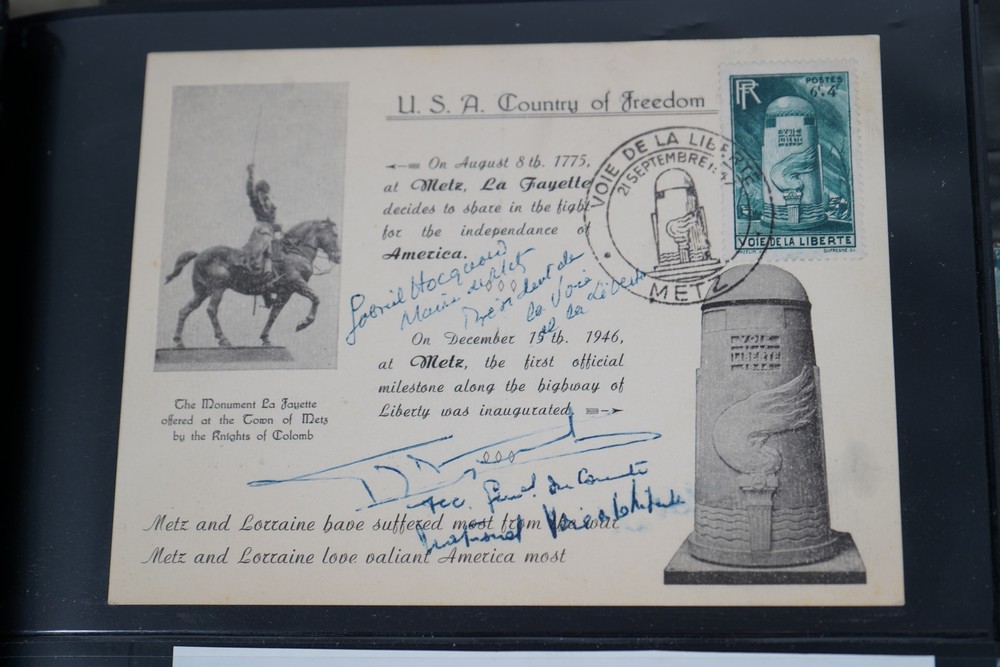 U. S. A. Country of Freedom
On August 8th. 1775,
at Metz, La Fayette
decides to share in the fight
for the independance of
America.
Gabriel Hocquard
Maire de Metz
Président de
la Voie
de la Liberté
On December 15th. 1946,
at Metz, the first official
milestone along the highway of
Liberty was inaugurated
The Monument La Fayette
offered at the Town of Metz
by the Knights of Colomb
Sec. Général du Comité
National Voie de la Liberté
Metz and Lorraine have suffered most from the war
Metz and Lorraine love valiant America most
VOIE DE LA LIBERTÉ
21 SEPTEMBRE
METZ
RF
POSTES
6f+4f
VOIE
LIBERTE
VOIE DE LA LIBERTE
VOIE
LIBERTE